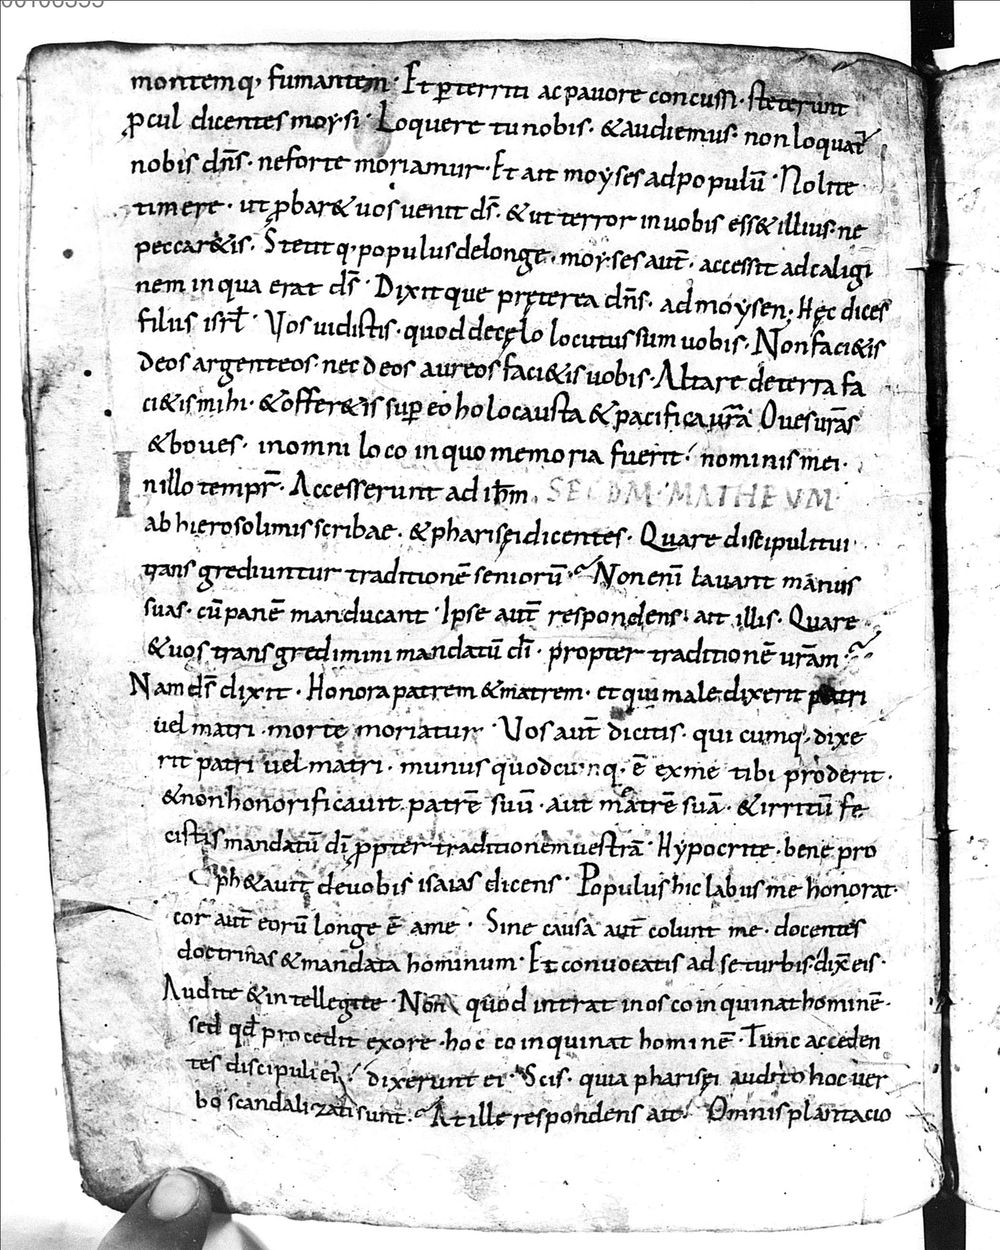 montemq; fumantem · Et ꝑterriti ac pauore concussi · steterunt
ꝓcul dicentes moysi · Loquere tu nobis · & audiemus · non loquat̃
nobis dñs · ne forte moriamur · Et ait moyses ad populū · Nolite
timere · ut ꝓbar& uos uenit ds̄ · & ut terror in uobis ess& illius · ne
peccar&is · Stetit q; populus de longe · moyses aut̄ · accessit ad caligi
nem in qua erat ds̄ · Dixit que pręterea dñs · ad moysen · Hęc dices
filiis isrł · Vos uidistis · quod de cęlo locutus sum uobis · Non faci&is
deos argenteos · nec deos aureos faci&is uobis · Altare de terra fa
ci&is mihi · & offer&is suꝑ eo holocausta & pacifica ur̄a Oues ur̄as
& boues · in omni loco in quo memoria fuerit nominis mei ·
In illo tempr̄ · Accesserunt ad ih̄m · SECDM · MATHEVM ·
ab hierosolimis scribae · & pharisęi dicentes · Quare discipuli tui
transgrediuntur traditionē seniorū · Non enī lauant manus
suas · cū panē manducant · Ipse aut̄ respondens ait illis · Quare
& uos transgredimini mandatū dī · propter traditionē ur̄am
Nam ds̄ dixit · Honora patrem & matrem · et qui male dixerit patri
uel matri · morte moriatur · Vos aut̄ dicitis · qui cumq; dixe
rit patri uel matri · munus quodcunq; ē ex me tibi proderit ·
& non honorificauit patrē suū · aut matrē suā · & irritū fe
cistis mandatū dī ꝓpter traditionem uestrā · Hypocrite · bene pro
ph&auit de uobis isaias dicens · Populus hic labiis me honorat ·
cor aut̄ eorū longe ē a me · Sine causa aut̄ colunt me · docentes
doctrinas & mandata hominum · Et conuocatis ad se turbis · dix̄ eis ·
Audite & intellegite · Non quod intrat in os coinquinat hominē ·
sed qđ procedit ex ore · hoc coinquinat hominē · Tunc acceden
tes discipuli ei dixerunt ei · Scis · quia pharisęi audito hoc uer
bo scandalizati sunt · At ille respondens ait Omnis plantacio